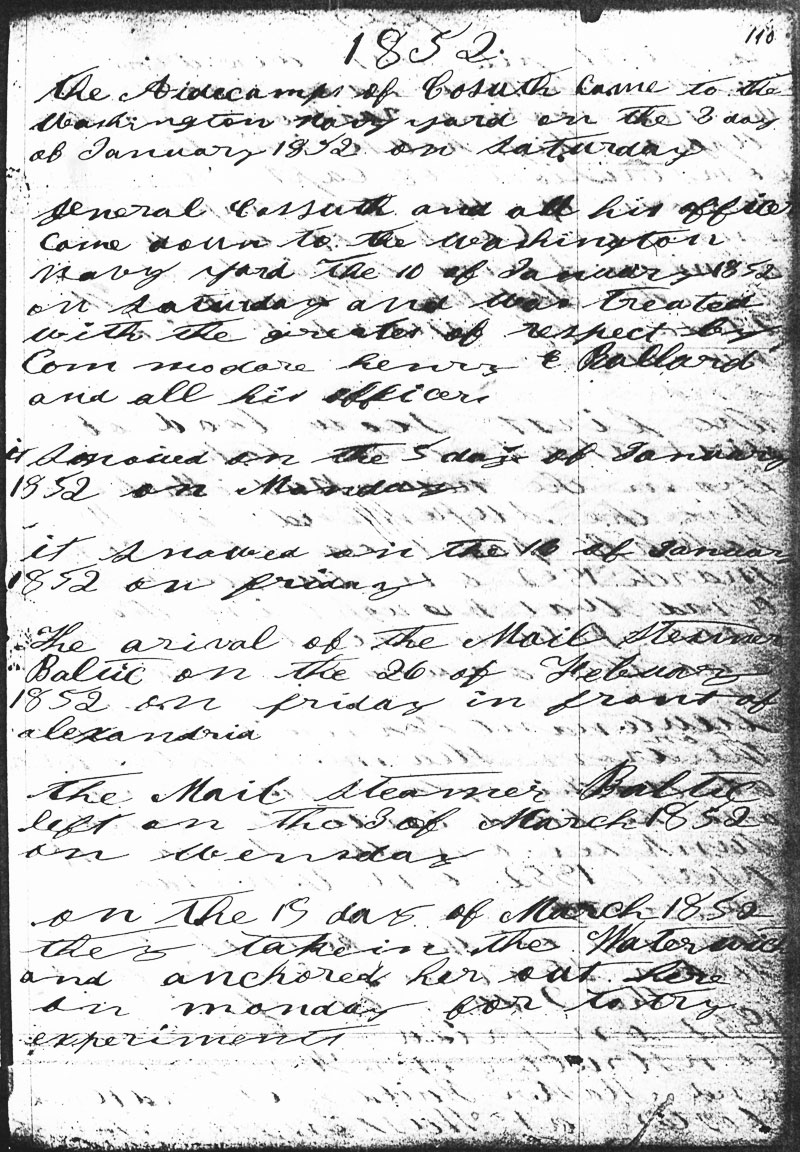 110
1852.
The Aidecamps of Cosuth Came to the
Washington navy yard on the 3 day
of January 1852 on Saturday
General Cossuth and all his officer
Came down to the Washington
navy yard The 10 of January 1852
on Saturday and was Treated
with the greates of respect by
Com modore henry E Ballard
and all his officers
it Snowed on the 5 day of January
1852 on Monday
it Snowed on the 16 of Januar
1852 on friday
The arival of the Mail Steamer
Baltic on the 26 of Febuary
1852 on friday in front of
alexandria
the Mail Steamer Baltic
left on the 3 of March 1852
on Wensday
on the 15 day of March 1852
they taken the Water witch
and anchored her out
on monday for to try
experiments